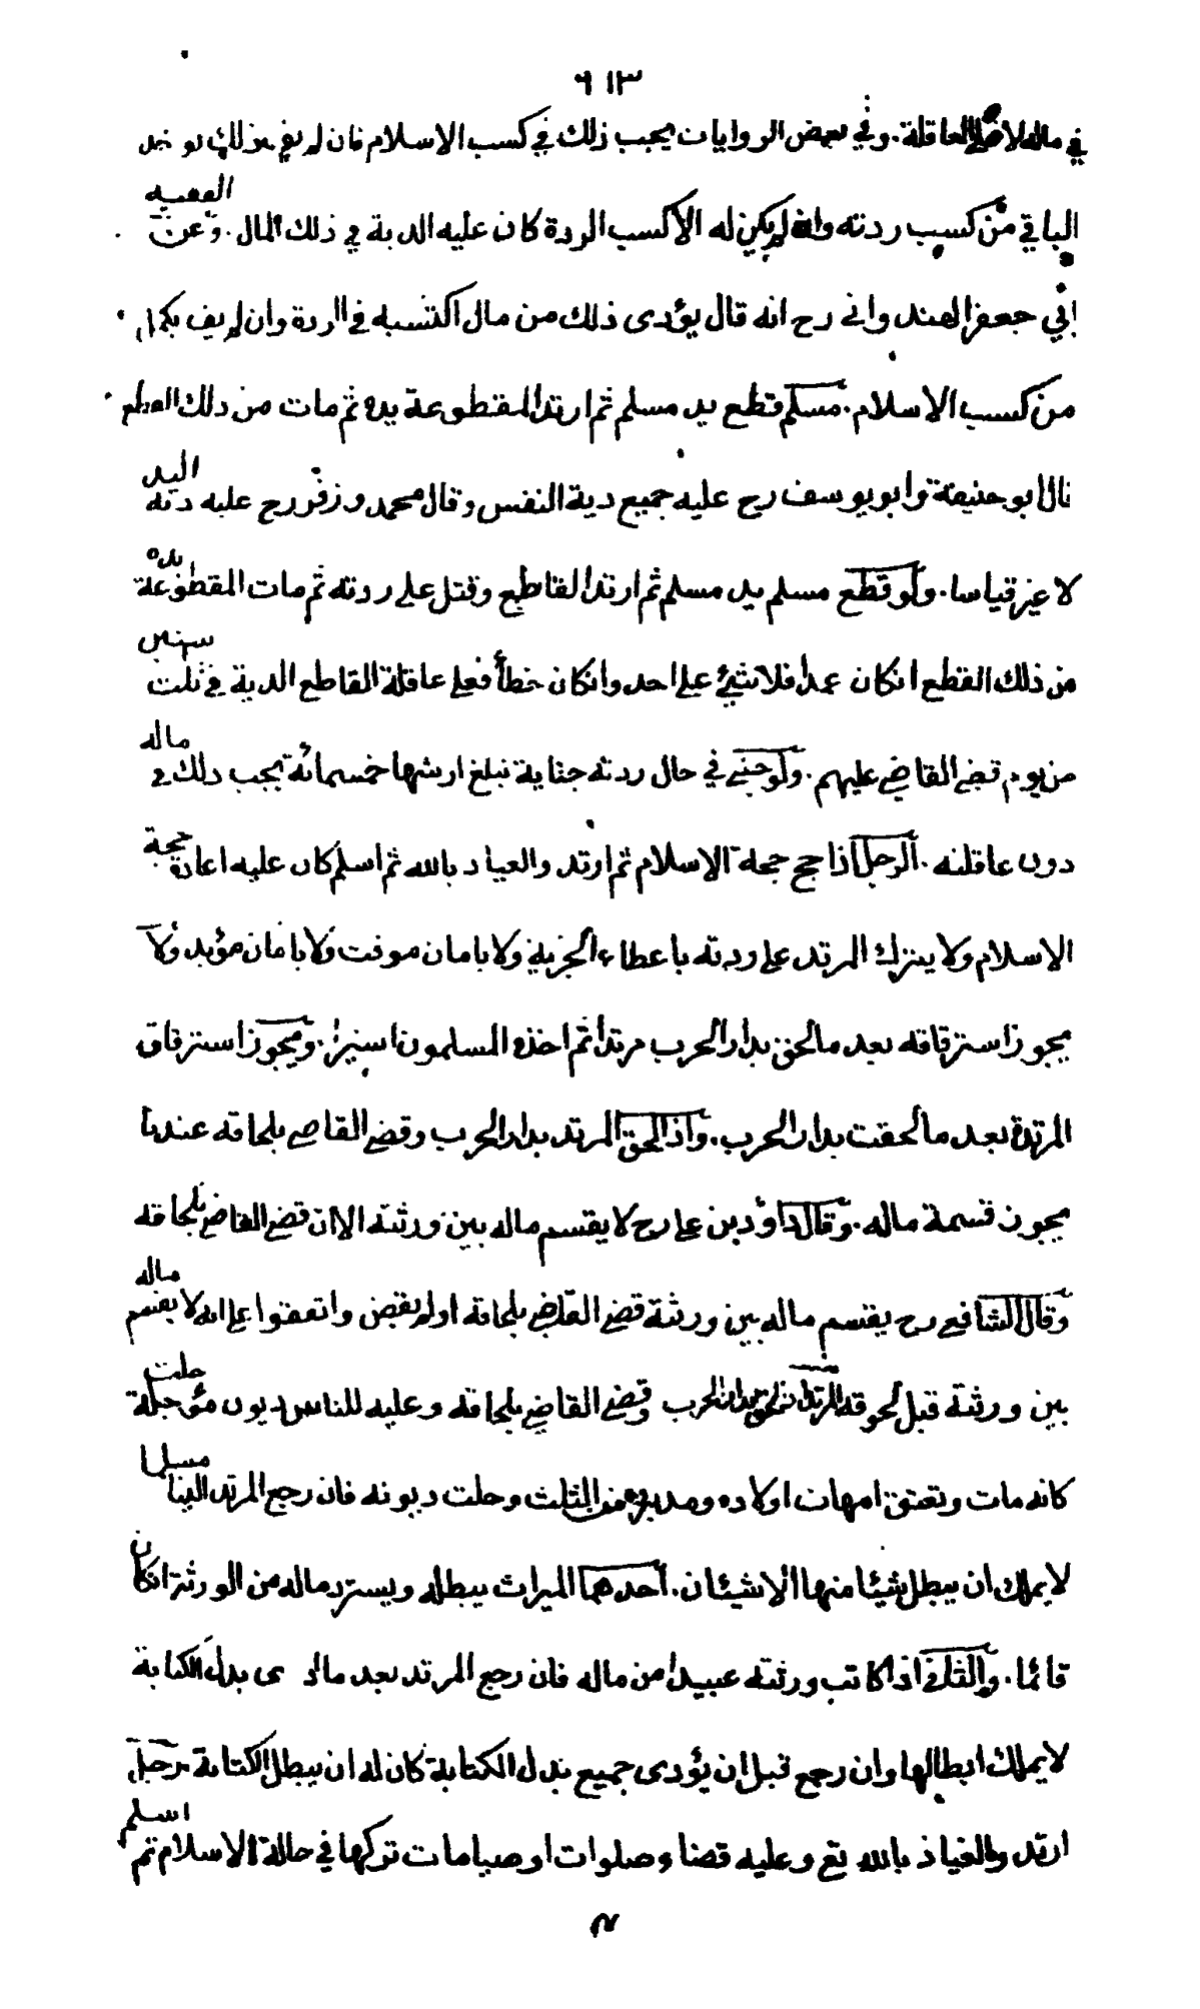 ٦١٣
في ماله لا على العاقلة. وفي بعض الروايات يجب ذلك في كسب الاسلام فان لم يف بذلك يوخذ
الباقي من كسب ردته وان لم يكن له الا كسب الردة كان عليه الدية في ذلك المال. وعن الفقيه
ابي جعفر الهندواني رح انه قال يؤدى ذلك من مال اكتسبه في الردة وان لم يف يكمل
من كسب الاسلام. مسلم قطع يد مسلم ثم ارتد المقطوعة يده ثم مات من ذلك القطع
قال ابو حنيفة وابو يوسف رح عليه جميع دية النفس وقال محمد وزفر رح عليه دية اليد
لا غير قياسا. ولو قطع مسلم يد مسلم ثم ارتد القاطع وقتل على ردته ثم مات المقطوعة يده
من ذلك القطع انكان عمدا فلا شئ على احد وانكان خطأ فعلى عاقلة القاطع الدية في ثلث سنين
من يوم قضى القاضي عليهم. ولو جنى في حال ردته جناية تبلغ ارشها خمسمائة يجب ذلك في ماله
دون عاقلته. الرجل اذا حج حجة الاسلام ثم ارتد والعياذ بالله ثم اسلم كان عليه اعادة حجة
الاسلام ولا يترك المرتد على ردته باعطاء الجزية ولا بامان موقت ولا بامان مؤبد ولا
يجوز استرقاقه بعد ما لحق بدار الحرب مرتدا ثم اخذه المسلمون اسيرا. ويجوز استرقاق
المرتدة بعد ما لحقت بدار الحرب. واذا لحق المرتد بدار الحرب وقضى القاضي بلحاقه عندنا
يجوز قسمة ماله. وقال داؤد بن علي رح لا يقتسم ماله بين ورثته الا ان قضى القاضي بلحاقه
وقال الشافعي رح يقتسم ماله بين ورثة قضى القاضي بلحاقه او لم يقض واتفقوا على انه لا يقسم ماله
بين ورثته قبل لحوقه المرتد اذا لحق بدار الحرب وقضى القاضي بلحاقه وعليه للناس ديون مؤجلة حلت
كانه مات وتعتق امهات اولاده ومدبروه من الثلث وحلت ديونه فان رجع المرتد الينا مسلما
لا يملك ان يبطل شيئا منها الا شيئان. احدهما الميراث يبطله ويسترد ماله من الورثة ان كان
قائما. والثاني اذا كاتب ورثته عبيدا من ماله فان رجع المرتد بعد ما ادى بدل الكتابة
لا يملك ابطالها وان رجع قبل ان يؤدى جميع بدل الكتابة كان له ان يبطل الكتابة رجل
ارتد والعياذ بالله تع وعليه قضاء صلوات او صيامات تركها في حالة الاسلام ثم اسلم